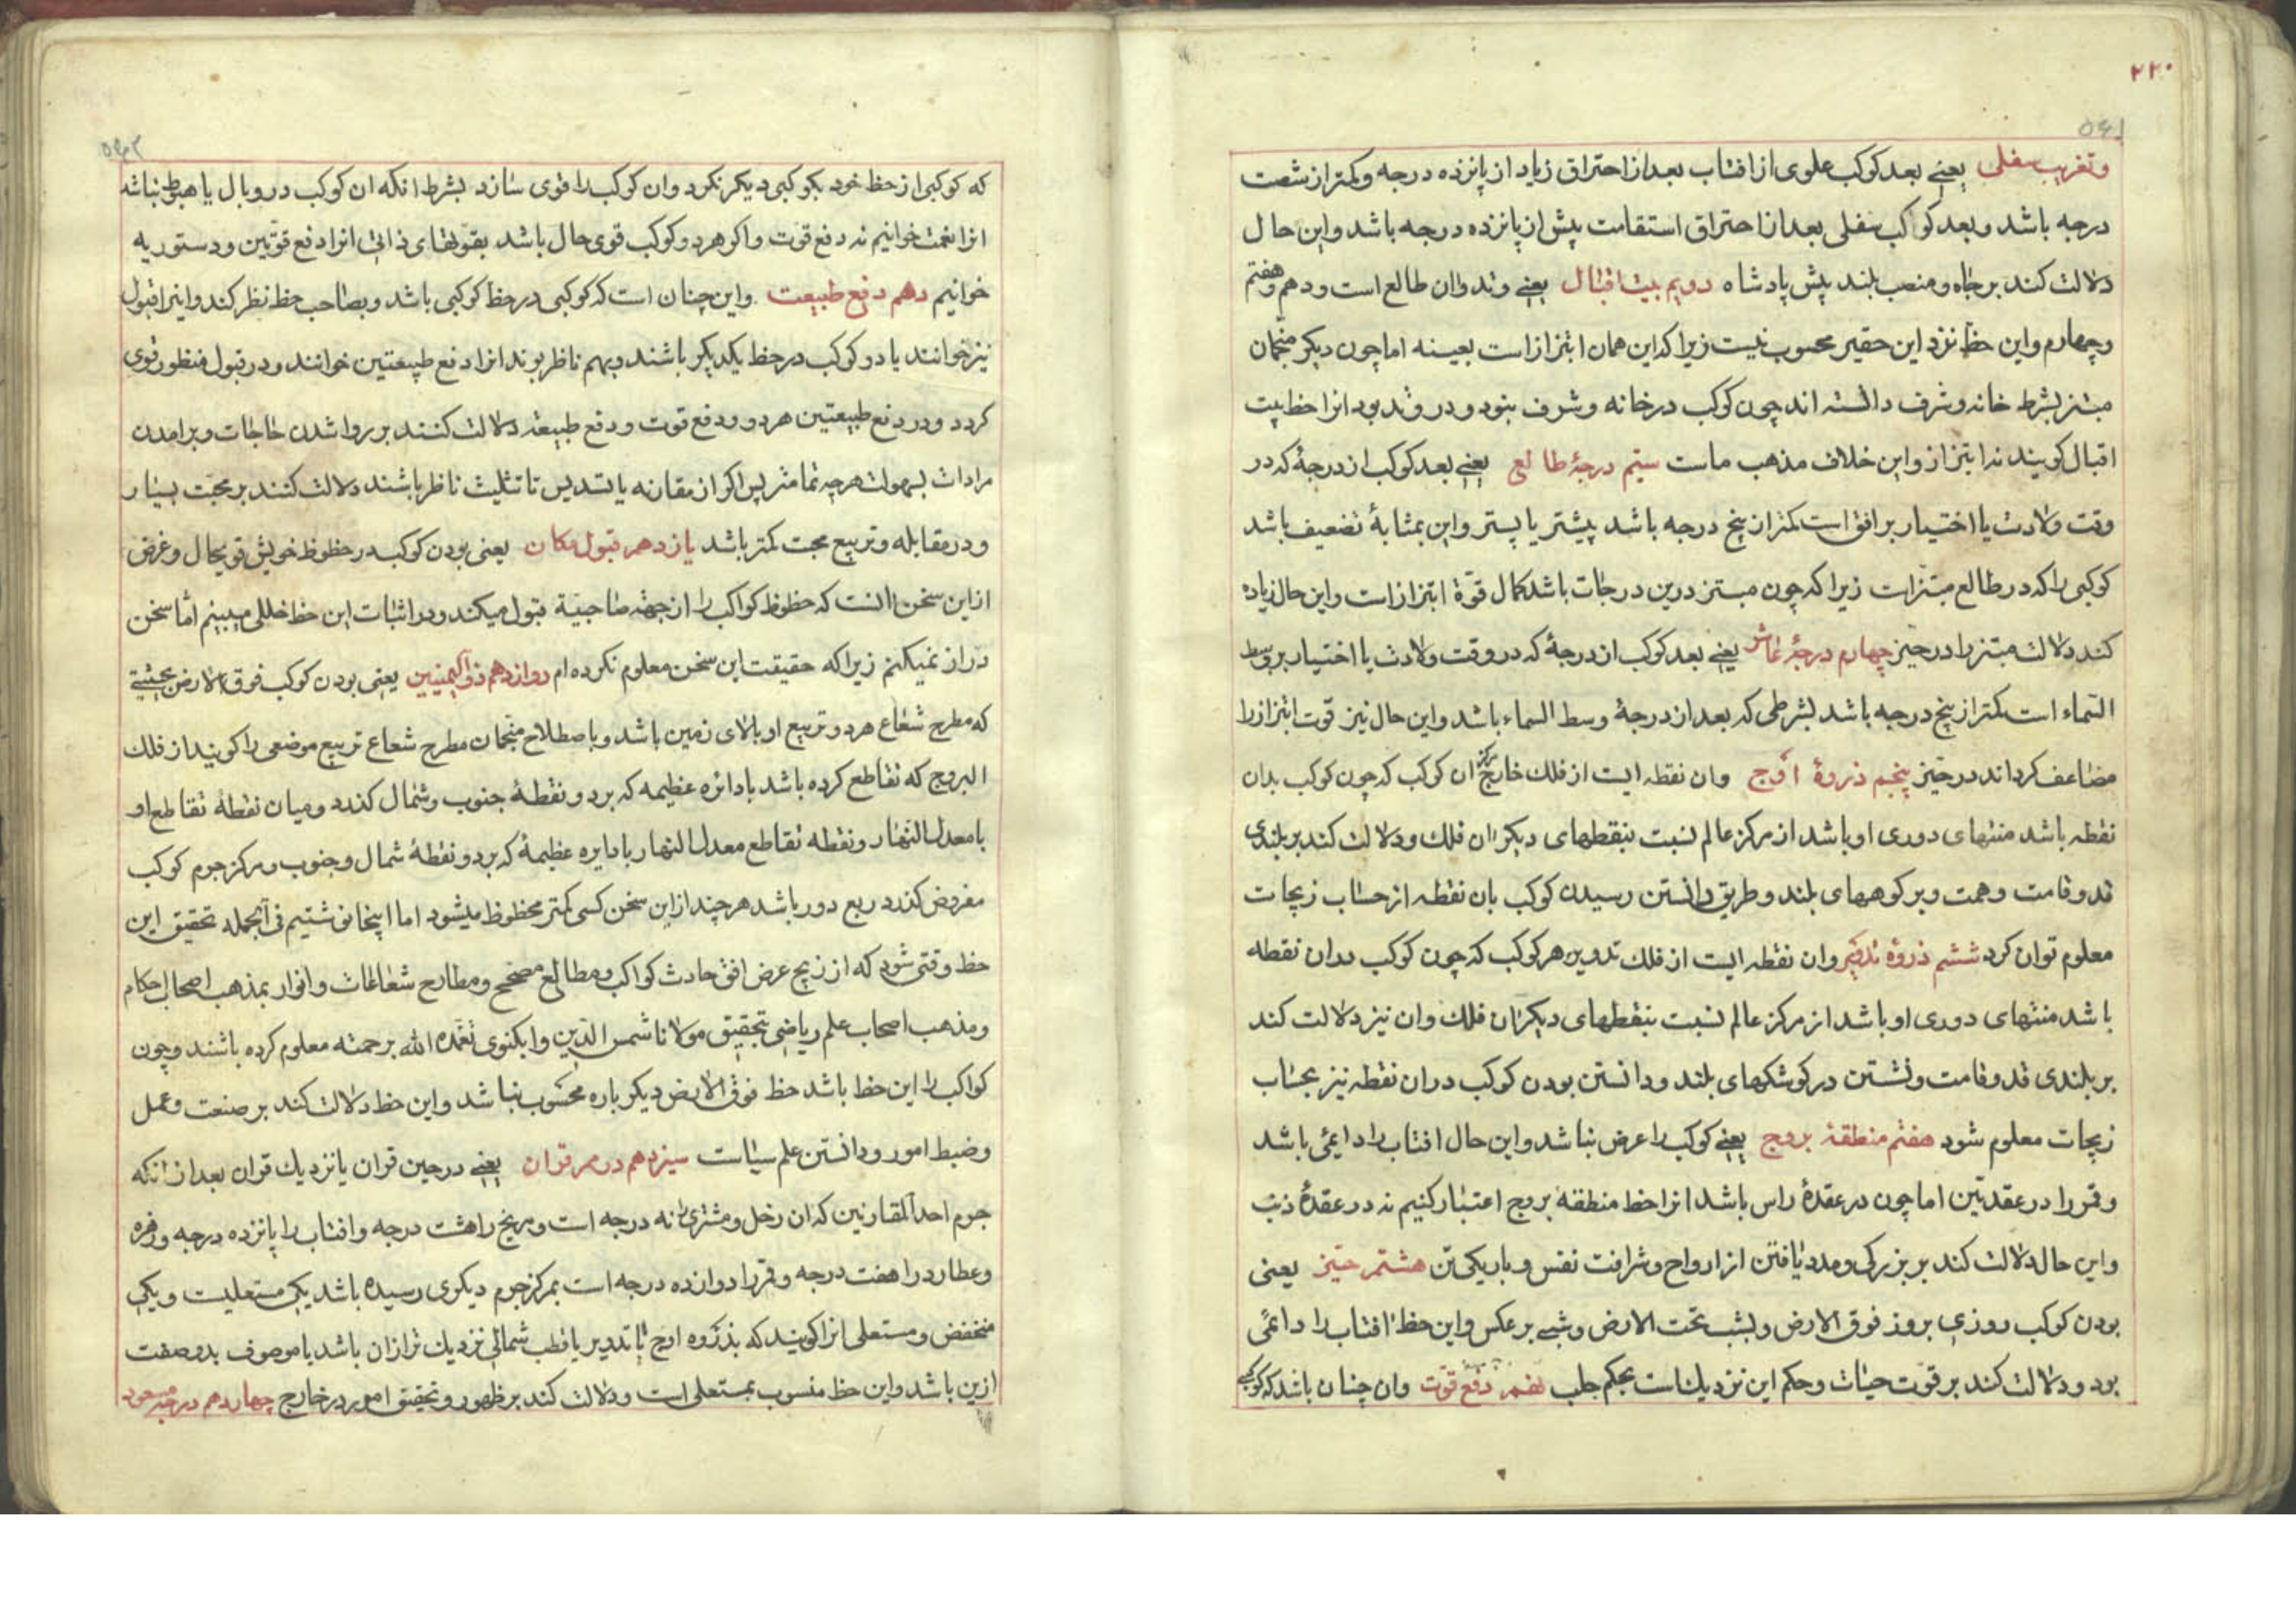 ۲۲۰
۵۶۱
وتغریب سفلی یعنے بعد کوکب علوی از افتاب بعد از احتراق زیاد از پانزده درجه وکمتر از شصت
درجه باشد وبعد کوکب سفلی بعد از احتراق استقامت پیش از پانزده درجه باشد واین حال
دلالت کند بر جاه ومنصب بلند پیش پادشاه دویم بیت اقبال یعنے وتد وان طالع است ودهم وهفتم
وچهارم واین حظ نزد این حقیر محسوب نیست زیرا که این همان ابتزاز است بعینه اما چون دیکر منجّمان
مبتز بشرط خانه وشرف دانسته اند چون کوکب در خانه وشرف بنود ودر وتد بود انرا حظ بیت
اقبال کویند نه ابتزاز واین خلاف مذهب ماست سیّم درجۀ طالع یعنے بعد کوکب از درجۀ که در
وقت ولادت یا اختیار بر افق است کمتر از پنج درجه باشد پیشتر یا پستر واین بمثابۀ تضعیف باشد
کوکبی را که در طالع مبتز است زیرا که چون مبتز درین درجات باشد کمال قوّة ابتزاز است واین حال زیاده
کند دلالت مبتز را در حیز چهارم درجۀ عاشر یعنے بعد کوکب از درجۀ که در وقت ولادت یا اختیار بر وسط
السّماء است کمتر از پنج درجه باشد بشرطی که بعد از درجۀ وسط السماء باشد واین حال نیز قوت ابتزاز را
مضاعف کرداند در حیّز پنجم ذروۀ اوج وان نقطه ایست از فلک خارج مرکز ان کوکب که چون کوکب بدان
نقطه باشد منتهای دوری او باشد از مرکز عالم نسبت بنقطهای دیکر ان فلک ودلالت کند بر بلندی
قد وقامت وهمت وبر کوههای بلند وطریق دانستن رسیدن کوکب بان نقطه از حساب زیجات
معلوم توان کرد ششم ذروۀ تدویر وان نقطه ایست از فلک تدویر هر کوکب که چون کوکب بدان نقطه
باشد منتهای دوری او باشد از مرکز عالم نسبت بنقطهای دیکر ان فلک وان نیز دلالت کند
بر بلندی قد وقامت ونشستن در کوشکهای بلند ودانستن بودن کوکب در ان نقطه نیز بحساب
زیجات معلوم شود هفتم منطقۀ بروج یعنے کوکب را عرض نباشد واین حال افتاب را دایمی باشد
وقمر را در عقدتین اما چون در عقدۀ راس باشد انرا حظ منطقۀ بروج اعتبار کنیم نه در عقدۀ ذنب
واین حال دلالت کند بر بزرکی ومدد یافتن از ارواح وشرافت نفس وباریکی تن هشتم حیّز یعنی
بودن کوکب روزی بروز فوق الارض وبشب تحت الارض وشبے بر عکس واین حظ افتاب را دائمی
بود ودلالت کند بر قوت حیات وحکم این نزدیک است بحکم حلب نهم دفع قوت وان چنان باشد که کوکبی
۵۶۲
که کوکبی از حظ خود بکوکبی دیکر نکرد وان کوکب را قوی سازد بشرط انکه ان کوکب در وبال یا هبوط نباشد
انرا نعمت خوانیم نه دفع قوت واکر هر دو کوکب قوی حال باشد بقوتهای ذاتی انرا دفع قوّتین ودستوریه
خوانیم دهم دفع طبیعت واین چنان است که کوکبی در حظ کوکبی باشد وبصاحب حظ نظر کند واینرا قبول
نیز خوانند یا دو کوکب در حظ یکدیکر باشند وبهم ناظر بوند انرا دفع طبیعتین خوانند ودر قبول منظور قوی
کردد ودر دفع طبیعتین هر دو ودفع قوت ودفع طبیعة دلالت کنند بر روا شدن حاجات وبرامدن
مرادات بسهولت هر چه تمامتر پس اکر از مقارنه یا تسدیس تا تثلیث ناظر باشند دلالت کنند بر محبت بسیار
ودر مقابله وتربیع محبت کمتر باشد یازدهم قبول مکان یعنی بودن کوکب در حظوظ خویش قویحال وغرض
از این سخن انست که حظوظ کواکب را از جهة صاحبیة قبول میکند ودر اثبات این حظ خللی میبینم امّا سخن
دراز نمیکنم زیرا که حقیقت این سخن معلوم نکرده ام دوازدهم ذو الیمینین یعنی بودن کوکب فوق الارض بحیثیتے
که مطرح شعاع هر دو تربیع او بالای زمین باشد وباصطلاح منجّمان مطرح شعاع تربیع موضعی را کویند از فلک
البروج که تقاطع کرده باشد با دائره عظیمه که بر دو نقطۀ جنوب وشمال کذرد ومیان نقطۀ تقاطع او
با معدل النّهار ونقطه تقاطع معدل النهار با دایره عظیمۀ که بر دو نقطۀ شمال وجنوب ومرکز جرم کوکب
مفروض کذرد ربع دور باشد هر چند از این سخن کسی کمتر محظوظ میشود اما اینجا نوشتیم فی الجمله تحقیق این
حظ وقتی شود که از زیج عرض افق حادث کواکب ومطالع مصحح ومطارح شعاعات وانوار بمذهب اصحاب احکام
ومذهب اصحاب علم ریاضی بتحقیق مولانا شمس الدّین وابکنوی تغمّده الله برحمته معلوم کرده باشند وچون
کواکب را این حظ باشد حظ فوق الارض دیکر باره محسوب نباشد واین حظ دلالت کند بر صنعت وعمل
وضبط امور ودانستن علم سیاست سیزدهم در مر قران یعنے در حین قران یا نزدیک قران بعد از انکه
جرم احد المقارنین که ان زحل ومشتری را نه درجه است ومریخ را هشت درجه وافتاب را پانزده درجه وزهره
وعطارد را هفت درجه وقمر را دوازده درجه است بمرکز جرم دیکری رسیده باشد یکی مستعلیست ویکی
منخفض ومستعلی انرا کویند که بذروه اوج یا تدویر یا قطب شمالی نزدیک تر از ان باشد یا موصوف بدو صفت
ازین باشد واین حظ منسوب بمستعلی است ودلالت کند بر ظهور وتحقیق امور در خارج چهاردهم در حیز مسعود